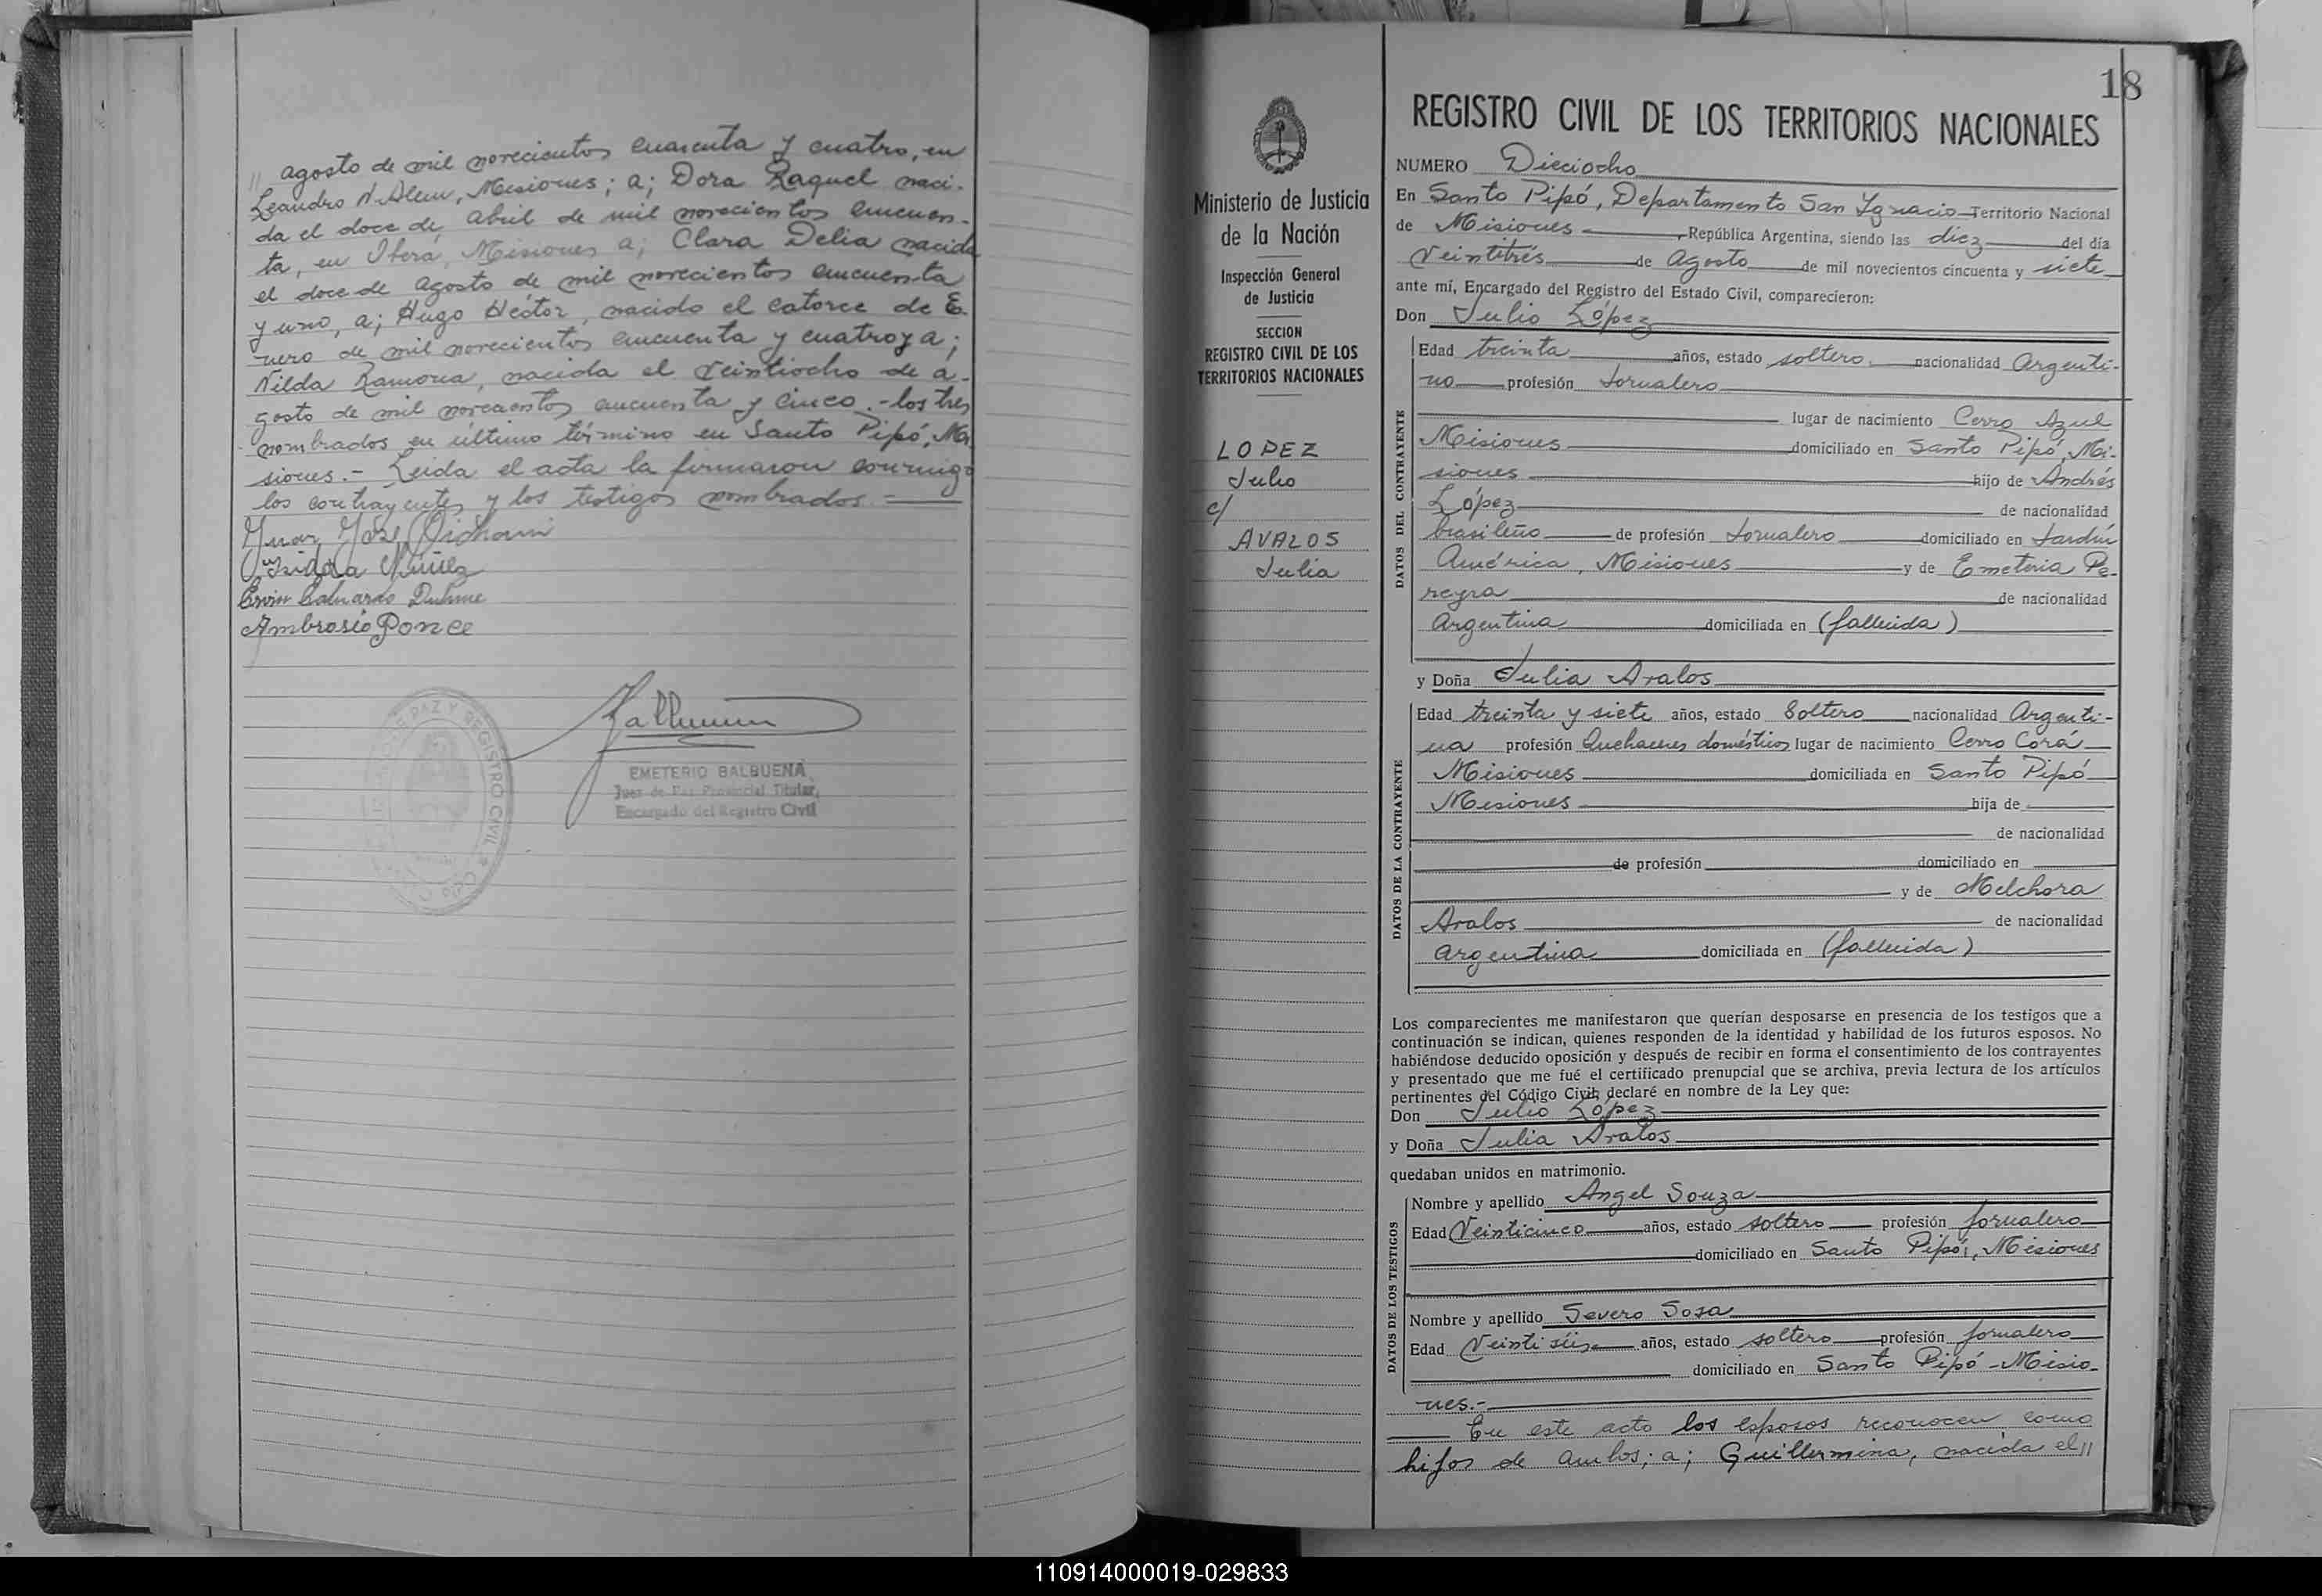 // agosto de mil novecientos cuarenta y cuatro, en
Leandro N. Alem, Misiones; a; Dora Raquel naci-
da el doce de abril de mil novecientos cincuen-
ta, en Iberá, Misiones a; Clara Delia nacida
el doce de agosto de mil novecientos cincuenta
y uno, a; Hugo Héctor, nacido el catorce de E-
nero de mil novecientos cincuenta y cuatro y a;
Nilda Ramona, nacida el veintiocho de a-
gosto de mil novecientos cincuenta y cinco.- los tres
nombrados en último término en Santo Pipó, Mi-
siones.- Leida el acta la firmaron conmigo
los contrayentes y los testigos nombrados.-
Juan José
Núñez
Ambrosio Ponce
DE PAZ Y REGISTRO CIVIL
EMETERIO BALBUENA
Juez de Paz Provincial Titular,
Encargado del Registro Civil
18
Ministerio de Justicia
de la Nación
Inspección General
de Justicia
SECCION
REGISTRO CIVIL DE LOS
TERRITORIOS NACIONALES
LOPEZ
Julio
c/
AVALOS
Julia
REGISTRO CIVIL DE LOS TERRITORIOS NACIONALES
NUMERO Dieciocho
En Santo Pipó, Departamento San Ignacio Territorio Nacional
de Misiones República Argentina, siendo las diez del día
Veintitrés de Agosto de mil novecientos cincuenta y siete
ante mí, Encargado del Registro del Estado Civil, comparecieron:
Don Julio López
DATOS DEL CONTRAYENTE
Edad treinta años, estado soltero nacionalidad Argenti-
no profesión Jornalero
lugar de nacimiento Cerro Azul
Misiones domiciliado en Santo Pipó, Mi-
siones hijo de Andrés
López de nacionalidad
brasileño de profesión Jornalero domiciliado en Jardín
América, Misiones y de Emeteria Pe-
reyra de nacionalidad
Argentina domiciliada en (fallecida)
y Doña Julia Avalos
DATOS DE LA CONTRAYENTE
Edad treinta y siete años, estado Soltero nacionalidad Argenti-
na profesión Quehaceres domésticos lugar de nacimiento Cerro Corá
Misiones domiciliada en Santo Pipó
Misiones hija de
de nacionalidad
de profesión domiciliado en
y de Melchora
Avalos de nacionalidad
argentina domiciliada en (fallecida)
Los comparecientes me manifestaron que querían desposarse en presencia de los testigos que a
continuación se indican, quienes responden de la identidad y habilidad de los futuros esposos. No
habiéndose deducido oposición y después de recibir en forma el consentimiento de los contrayentes
y presentado que me fué el certificado prenupcial que se archiva, previa lectura de los artículos
pertinentes del Código Civil, declaré en nombre de la Ley que:
Don Julio López
y Doña Julia Avalos
quedaban unidos en matrimonio.
DATOS DE LOS TESTIGOS
Nombre y apellido Angel Souza
Edad Veinticinco años, estado soltero profesión jornalero
domiciliado en Santo Pipó, Misiones
Nombre y apellido Severo Sosa
Edad años, estado soltero profesión jornalero
domiciliado en Santo Pipó - Misio-
nes.-
En este acto los esposos reconocen como
hijos de ambos; a; Guillermina, nacida el //
110914000019-029833